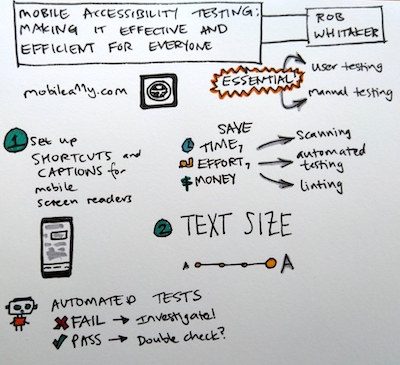 MOBILE ACCESSIBILITY TESTING:
MAKING IT EFFECTIVE AND
EFFICIENT FOR EVERYONE
ROB
WHITAKER
mobilea11y.com
ESSENTIAL
user testing
manual testing
1 Set up
SHORTCUTS and
CAPTIONS for
mobile
screen readers
SAVE
TIME,
EFFORT,
$ MONEY
Scanning
automated
testing
linting
2 TEXT SIZE
A A
AUTOMATED TESTS
FAIL → Investigate!
PASS → Double check?